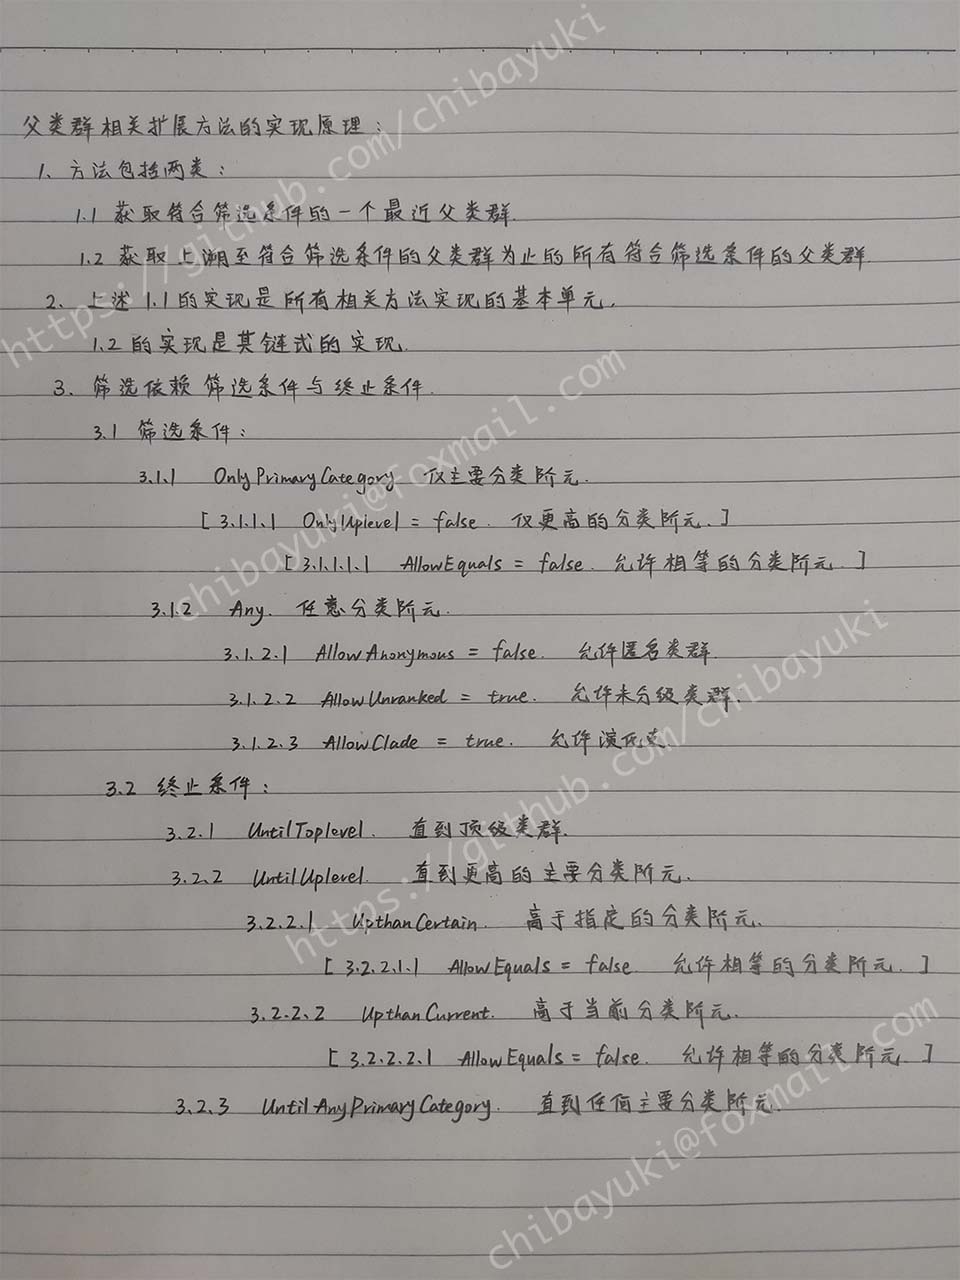 父类群相关扩展方法的实现原理：
1、方法包括两类：
1.1 获取符合筛选条件的一个最近父类群.
1.2 获取上溯至符合筛选条件的父类群为止的所有符合筛选条件的父类群.
2、上述1.1的实现是所有相关方法实现的基本单元，
1.2的实现是其链式的实现.
3、筛选依赖筛选条件与终止条件.
3.1 筛选条件：
3.1.1 OnlyPrimaryCategory 仅主要分类阶元.
[ 3.1.1.1 OnlyUplevel = false. 仅更高的分类阶元. ]
[ 3.1.1.1.1 AllowEquals = false. 允许相等的分类阶元. ]
3.1.2 Any. 任意分类阶元.
3.1.2.1 AllowAnonymous = false. 允许匿名类群.
3.1.2.2 AllowUnranked = true. 允许未分级类群.
3.1.2.3 AllowClade = true. 允许演化支.
3.2 终止条件：
3.2.1 UntilToplevel. 直到顶级类群.
3.2.2 UntilUplevel. 直到更高的主要分类阶元.
3.2.2.1 UpthanCertain. 高于指定的分类阶元.
[ 3.2.2.1.1 AllowEquals = false. 允许相等的分类阶元. ]
3.2.2.2 UpthanCurrent. 高于当前分类阶元.
[ 3.2.2.2.1 AllowEquals = false. 允许相等的分类阶元. ]
3.2.3 UntilAnyPrimaryCategory. 直到任何主要分类阶元.
https://github.com/chibayuki
chibayuki@foxmail.com
https://github.com/chibayuki
chibayuki@foxmail.com